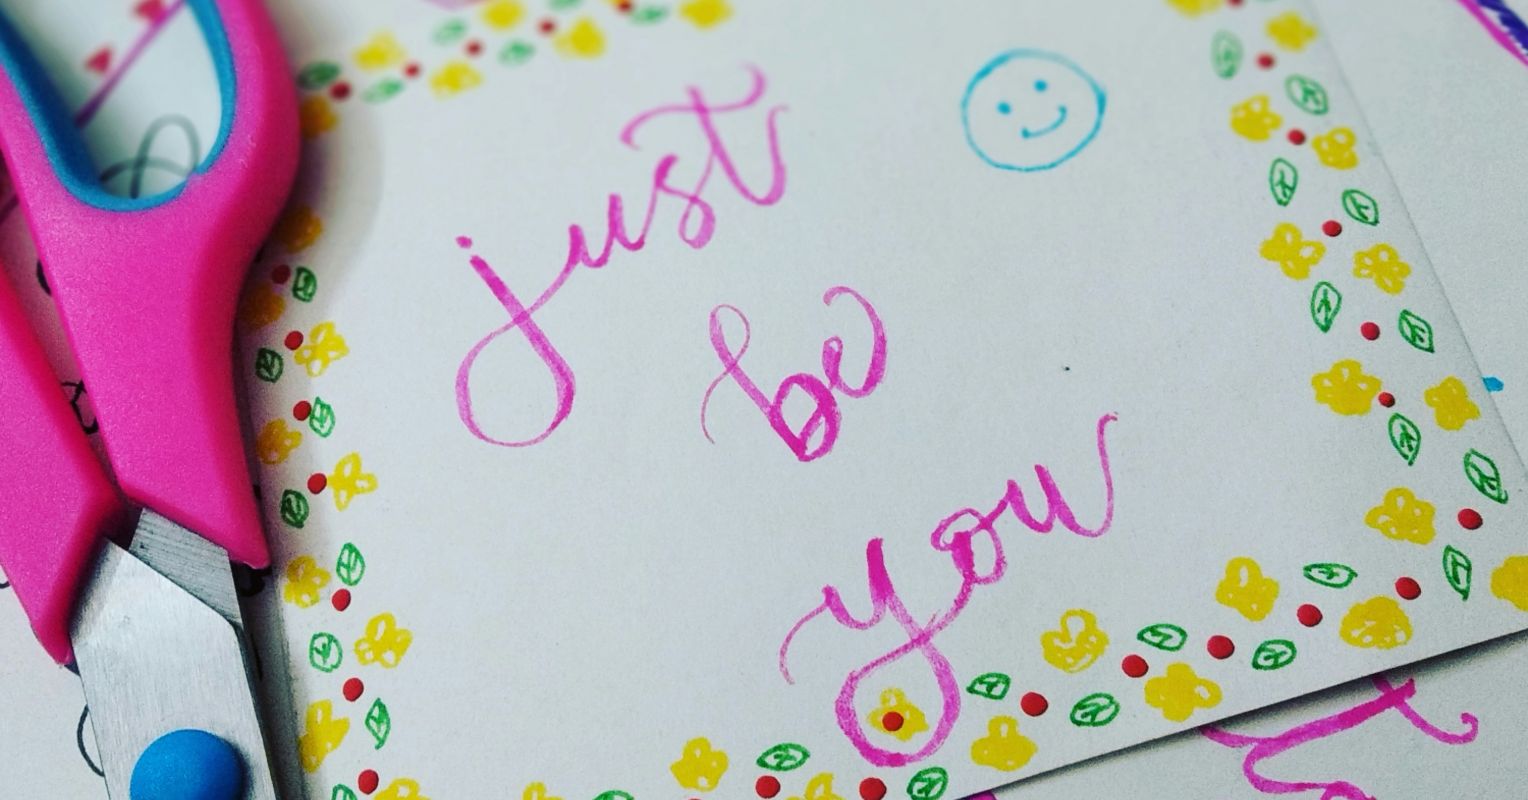 just
be
you